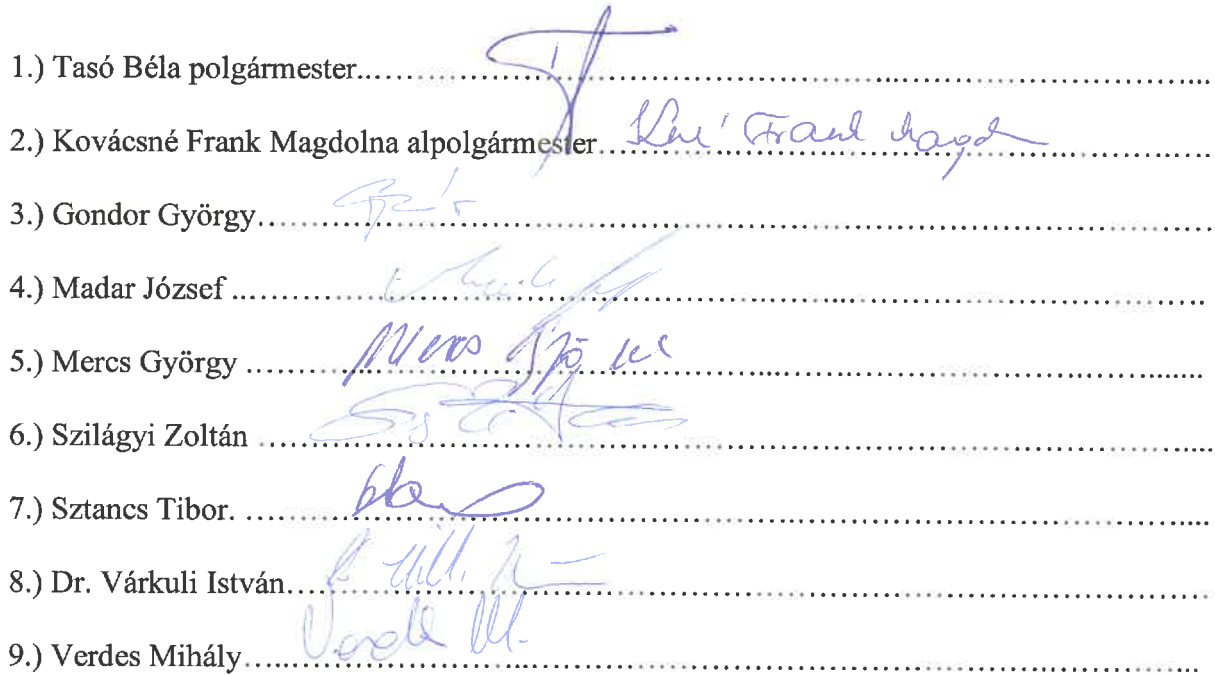 1.) Tasó Béla polgármester
2.) Kovácsné Frank Magdolna alpolgármester Kné Frank Magd
3.) Gondor György
4.) Madar József
5.) Mercs György Mercs György
6.) Szilágyi Zoltán
7.) Sztancs Tibor.
8.) Dr. Várkuli István
9.) Verdes Mihály Verdes M.